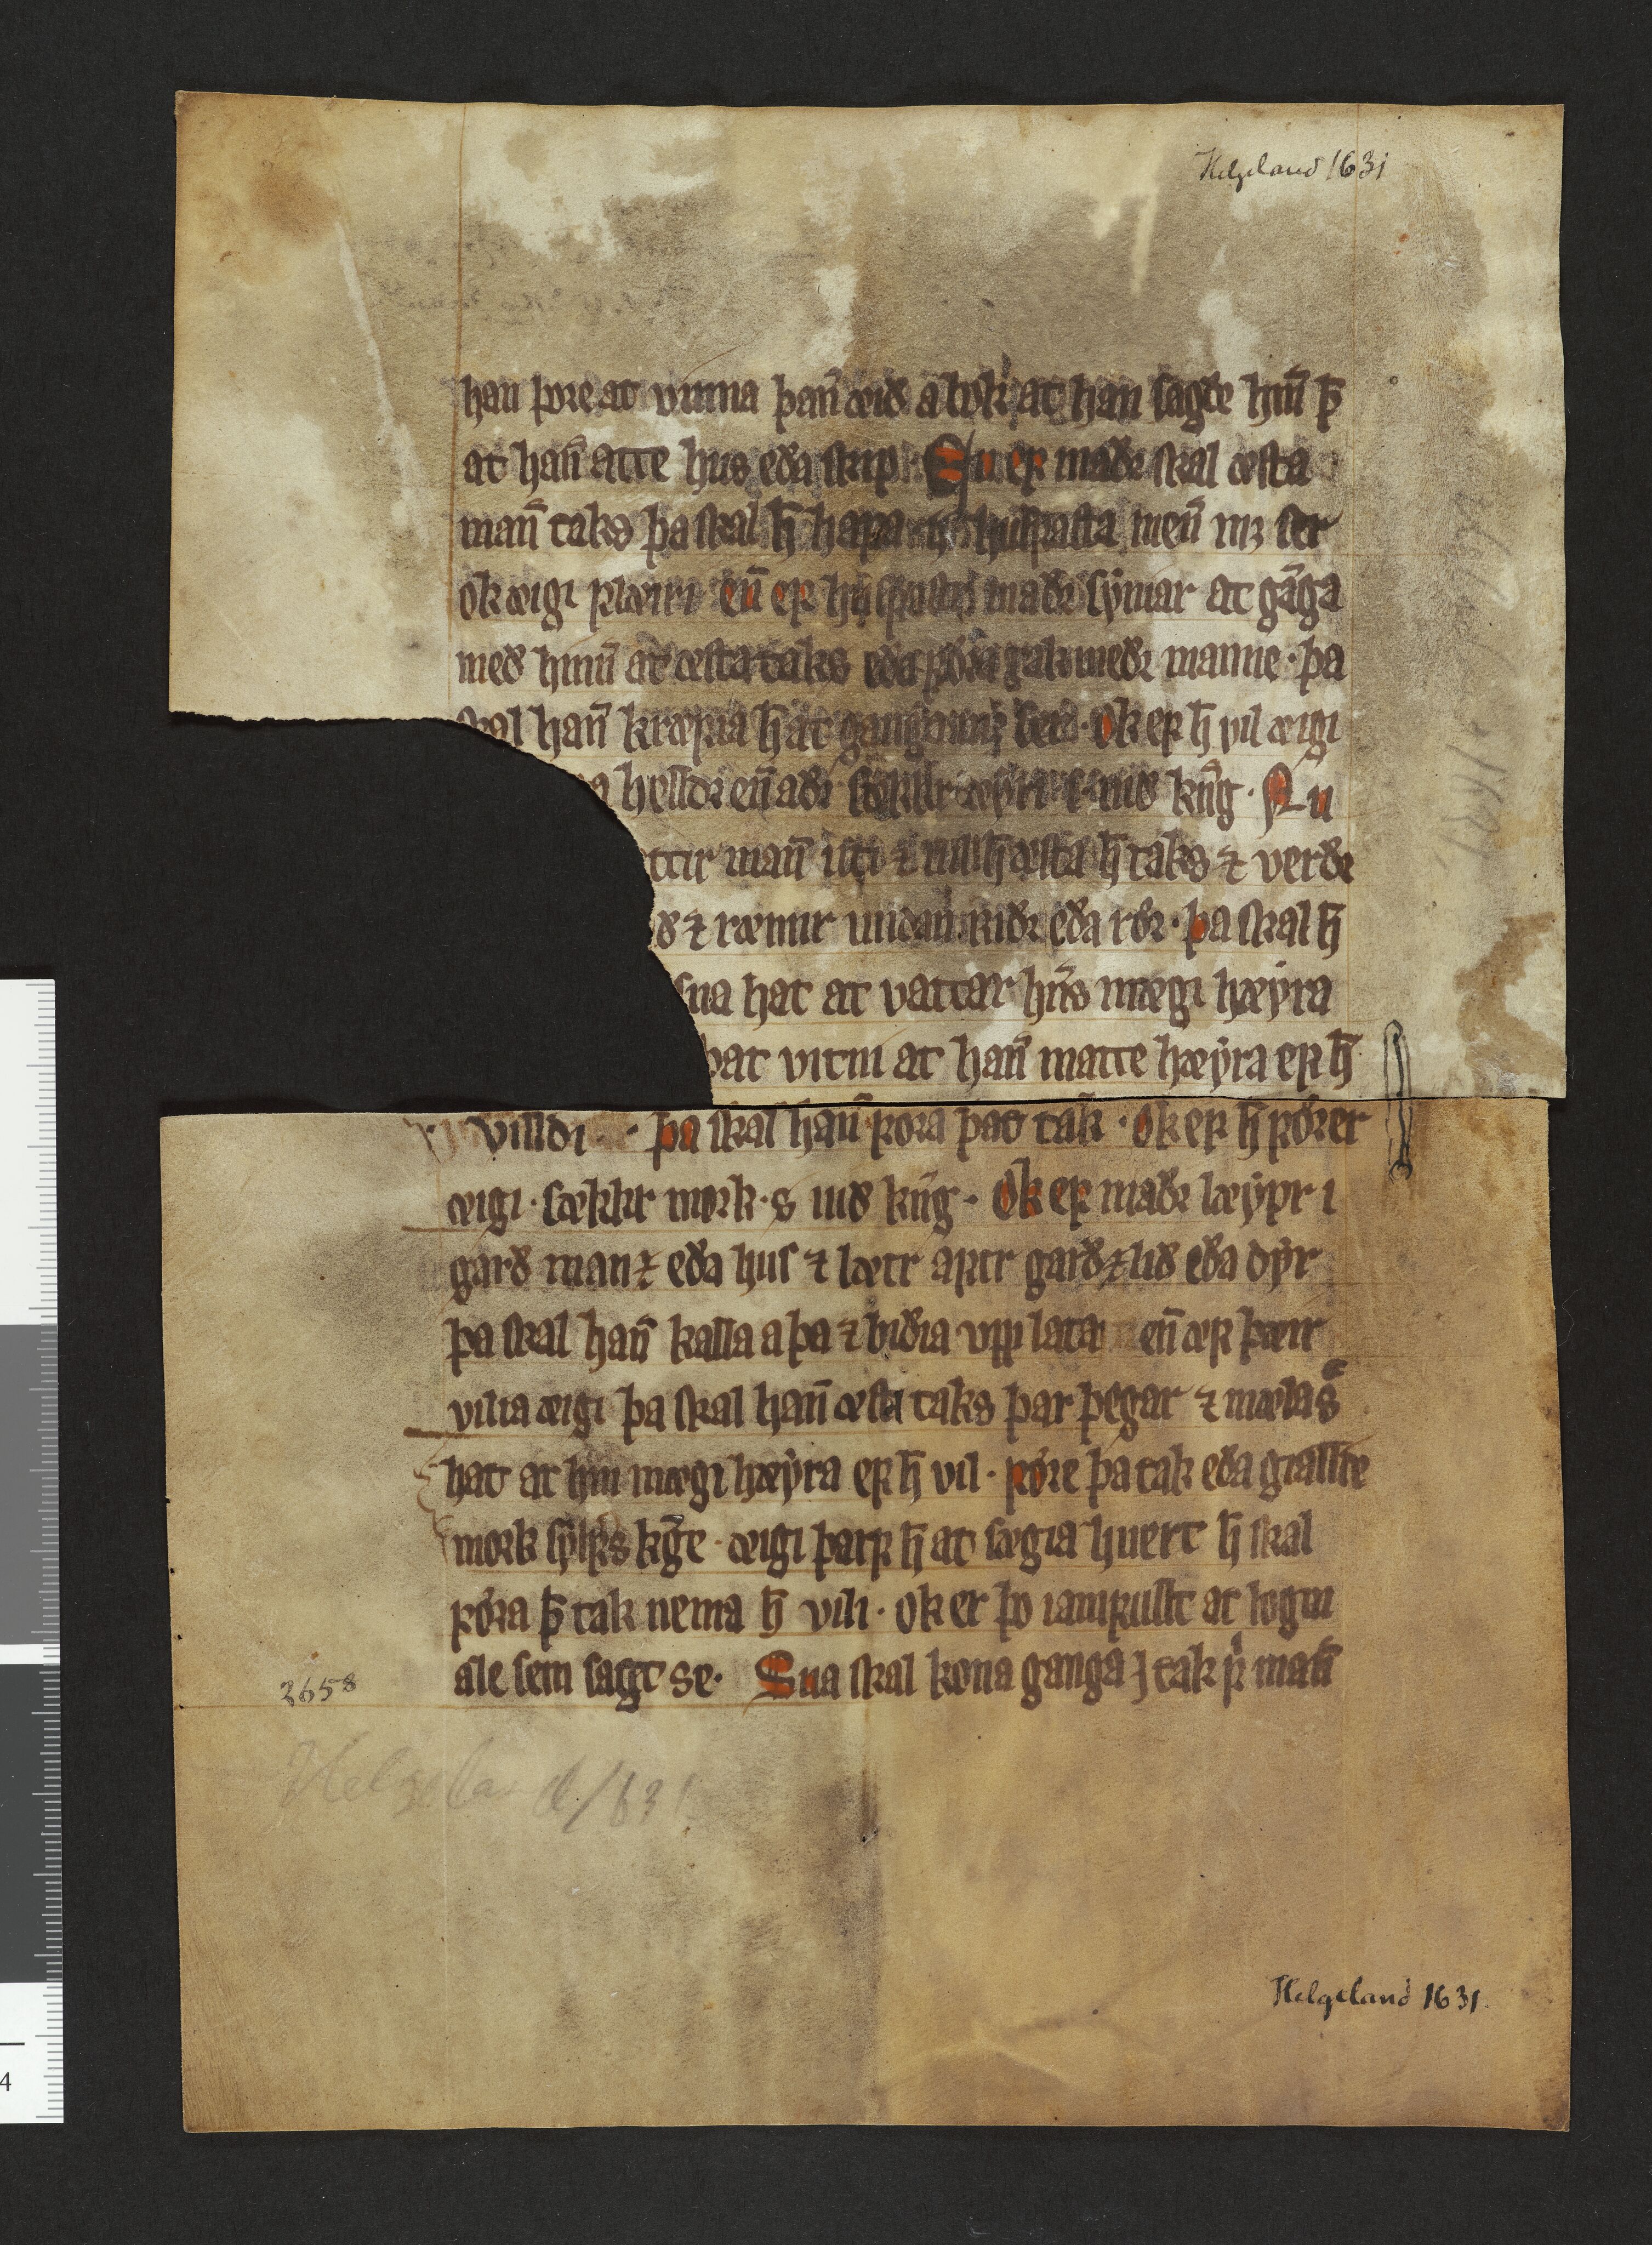 Helgeland 1631
han þore at vinna þan̄ æið a bok at han sagðe hm̄ þ̄
at han̄ atte hus eða skip. En ef maðr skal æsta
man̄ taks þa skal h̄ hafa husfasta men̄ mꝫ ser
ok æigi flæiri en̄ ef maðr syniar at gāga
með hm̄ at æsta taks eða fǿra tak medr manne. þa
skal han̄ kræfia h̄ at ganga mꝫ ser. Ok ef h̄ vil æigi
helldr en̄ aðr sækkr æyri .s. við kn̄g. Nu
ttir man̄ uti ⁊ vill h̄ æsta h̄ taks ⁊ verðr
ð ⁊ rænnr undan riðr eða rǿr. þa skal h̄
sua hat at vattar hn̄s mægi hæyra
þat vitni at han̄ matte hæyra ef h̄
villdi. þa skal han̄ fǿra þat tak. Ok ef h̄ fǿrer
æigi. sækkr mork .s við kn̄g. Ok ef maðr læypr i
garð manz eða hus ⁊ lætr aftr garðz lið eða dyr
þa skal han̄ kalla a þa ⁊ biðia upp lata en̄ æf þæir
vilia æigi þa skal han̄ æsta taks þar þegar ⁊ mæla s̄
hat at hin mægi hæyra ef h̄ vil. fǿre þa tak eða giallde
mork sylfrs kn̄ge. æigi þarf h̄ at sægia huert h̄ skal
fǿra þ̄ tak nema h̄ vili. Ok er þo iamfullt at logum
ale sem sagt se. Sua skal kona ganga j tak f̄ man̄
3658
Helgeland 1631
Helgeland 1631